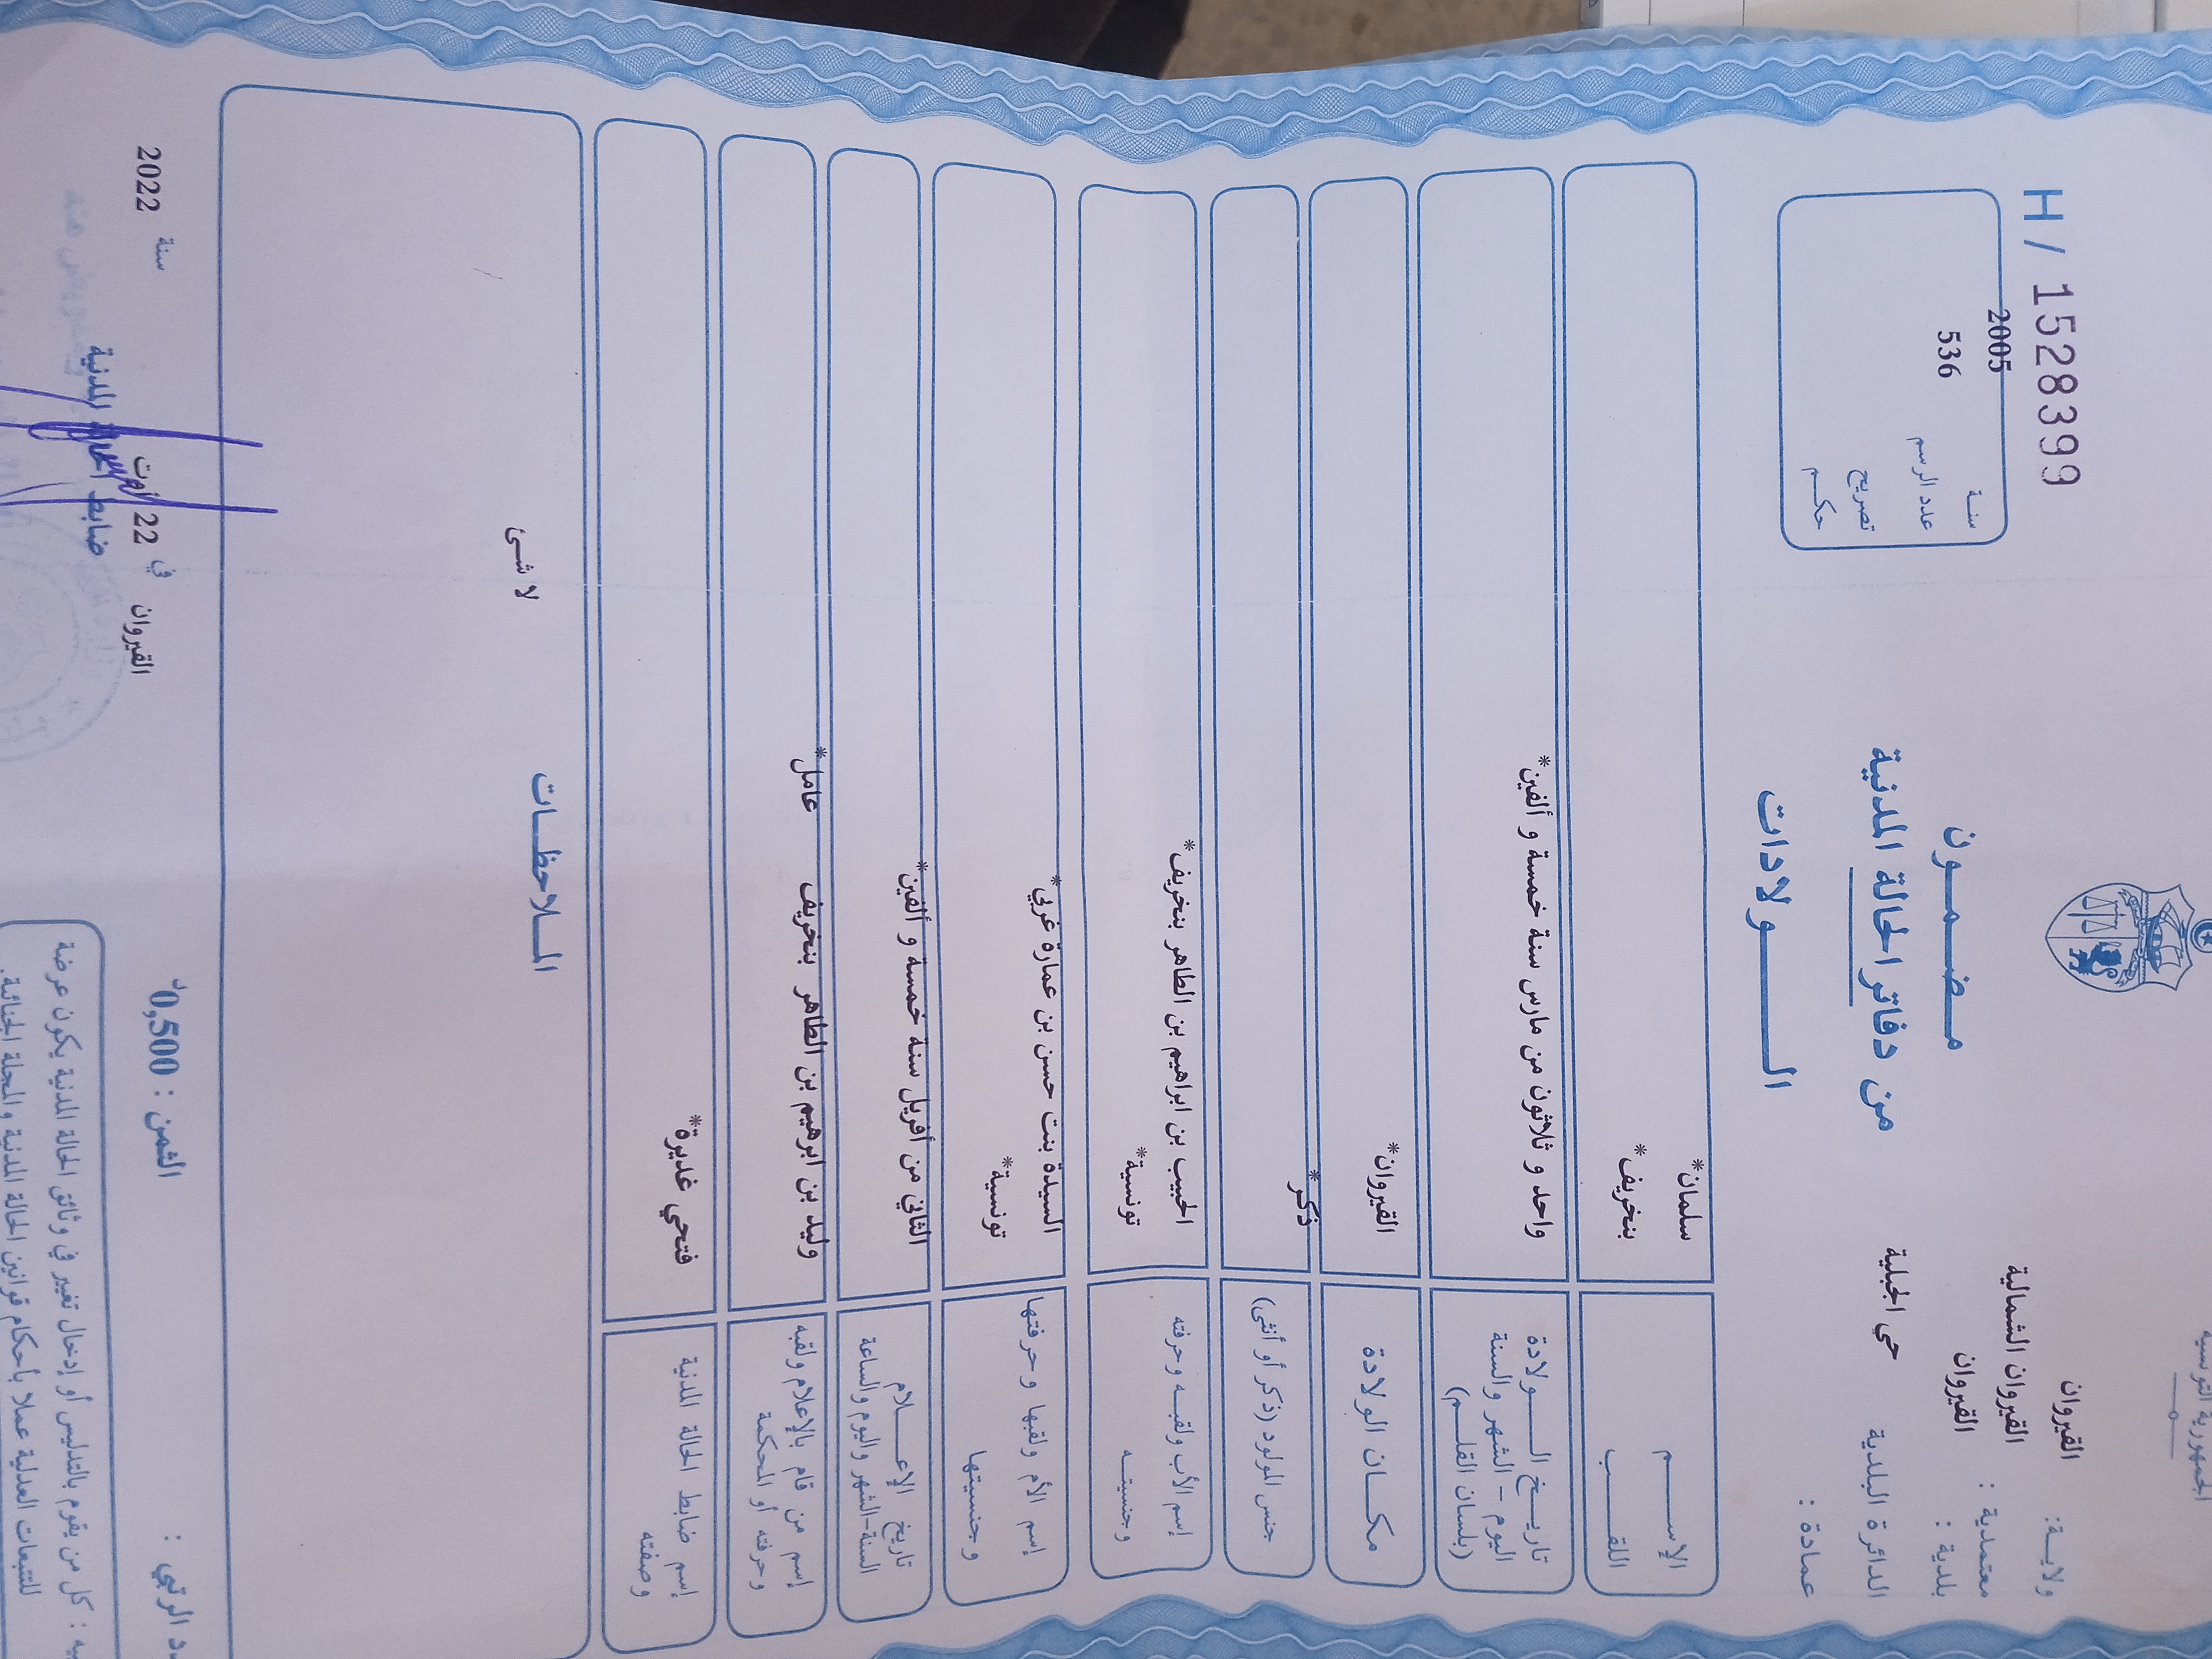 الجمهورية التونسية
ولايــة: القيروان
معتمدية : القيروان الشمالية
بلدية : القيروان
الدائرة البلدية حي الجبلية
عمادة :
H / 1528399
سنـة 2005
عدد الرسم 536
تصريح
حكــم
مـضـمــون
من دفاتر الحالة المدنية
الــــولادات
الإســــم سلمان*
اللقــــب بنخريف*
تاريــخ الــــولادة
اليوم - الشهر والسنة
(بلسان القلــم)
واحد و ثلاثون من مارس سنة خمسة و ألفين*
مكــان الولادة القيروان*
جنس المولود (ذكر أو أنثى) ذكر*
إسم الأب ولقبــه وحرفته الحبيب بن ابراهيم بن الطاهر بنخريف*
وجنسيتــه تونسية*
إسم الأم ولقبها وحرفتها السيدة بنت حسن بن عمارة غربي*
وجنسيتها تونسية*
تاريخ الإعــــلام
السنة-الشهر واليوم والساعة
الثاني من أفريل سنة خمسة و ألفين*
إسم من قام بالإعلام ولقبه
وحرفته أو المحكمة
وليد بن ابرهيم بن الطاهر بنخريف عامل*
إسم ضابط الحالة المدنية
وصفته
فتحي غديرة*
المــلاحظــات
لا شــئ
الثمن : 0,500د
القيروان في 22 أوت سنة 2022
ضابط الحالة المدنية
كل من يقوم بالتدليس أو إدخال تغيير في وثائق الحالة المدنية يكون عرضة
للتتبعات العدلية عملا بأحكام قوانين الحالة المدنية والمجلة الجنائية.